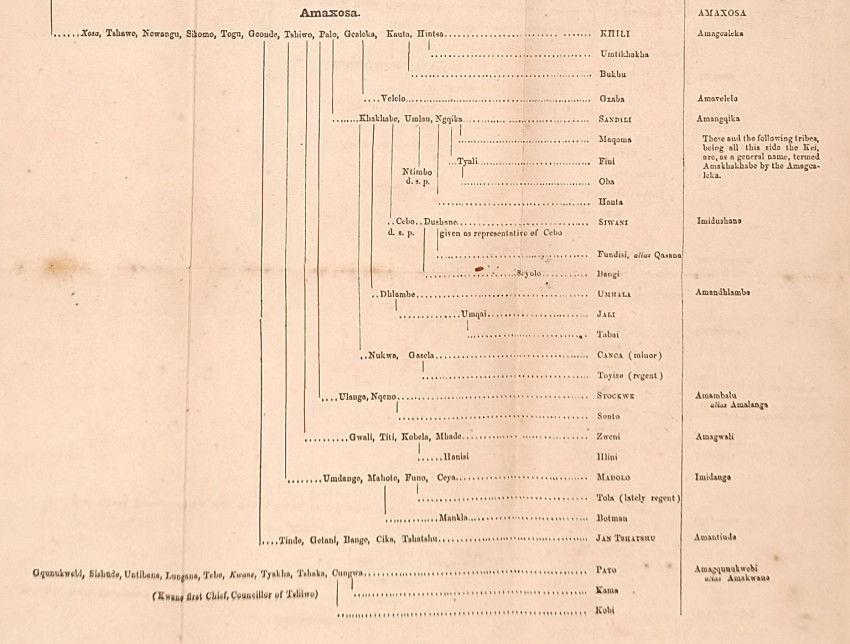 Amaxosa. AMAXOSA
Xosa, Tshawo, Nowangu, Sikomo, Togu, Gconde, Tshiwo, Palo, Gcaleka, Kauta, Hintsa KHILI Amagcaleka
Umtikhakha
Bukhu
Velelo Gxaba Amavelelo
Khakhabe, Umlau, Ngqika SANDILI Amangqika
Maqoma These and the following tribes,
being all this side the Kei,
are, as a general name, termed
Amakhakhabe by the Amagca-
leka.
Tyali Fini
Ntimbo
d. s. p.
Oba
Hauta
Cebo Dushane SIWANI Imidushane
d. s. p. given as representative of Cebo
Fundisi, alias Qasana
Siyolo Bangi
Dhlambe UMHALA Amandhlambe
Umqai JALI
Tabai
Nukwa, Gasela CANCA (minor)
Toyise (regent)
Ulanga, Nqeno STOCKWE Amambalu
alias Amalanga
Sonto
Gwali, Titi, Kobela, Mbade Zweni Amagwali
Hanisi Hlini
Umdange, Mahote, Funo, Ceya MADOLO Imidange
Tola (lately regent)
Mankla Botman
Tinde, Getani, Bange, Cika, Tshatshu JAN TSHATSHU Amantinde
Gqunukwebi, Untibana, Lungana, Tebe, Kwane, Tyakha, Tshaka, Cungwa PATO Amagqunukwebi
alias Amakwane
(Kwane first Chief, Councillor of Tshiwo) Kama
Kobi